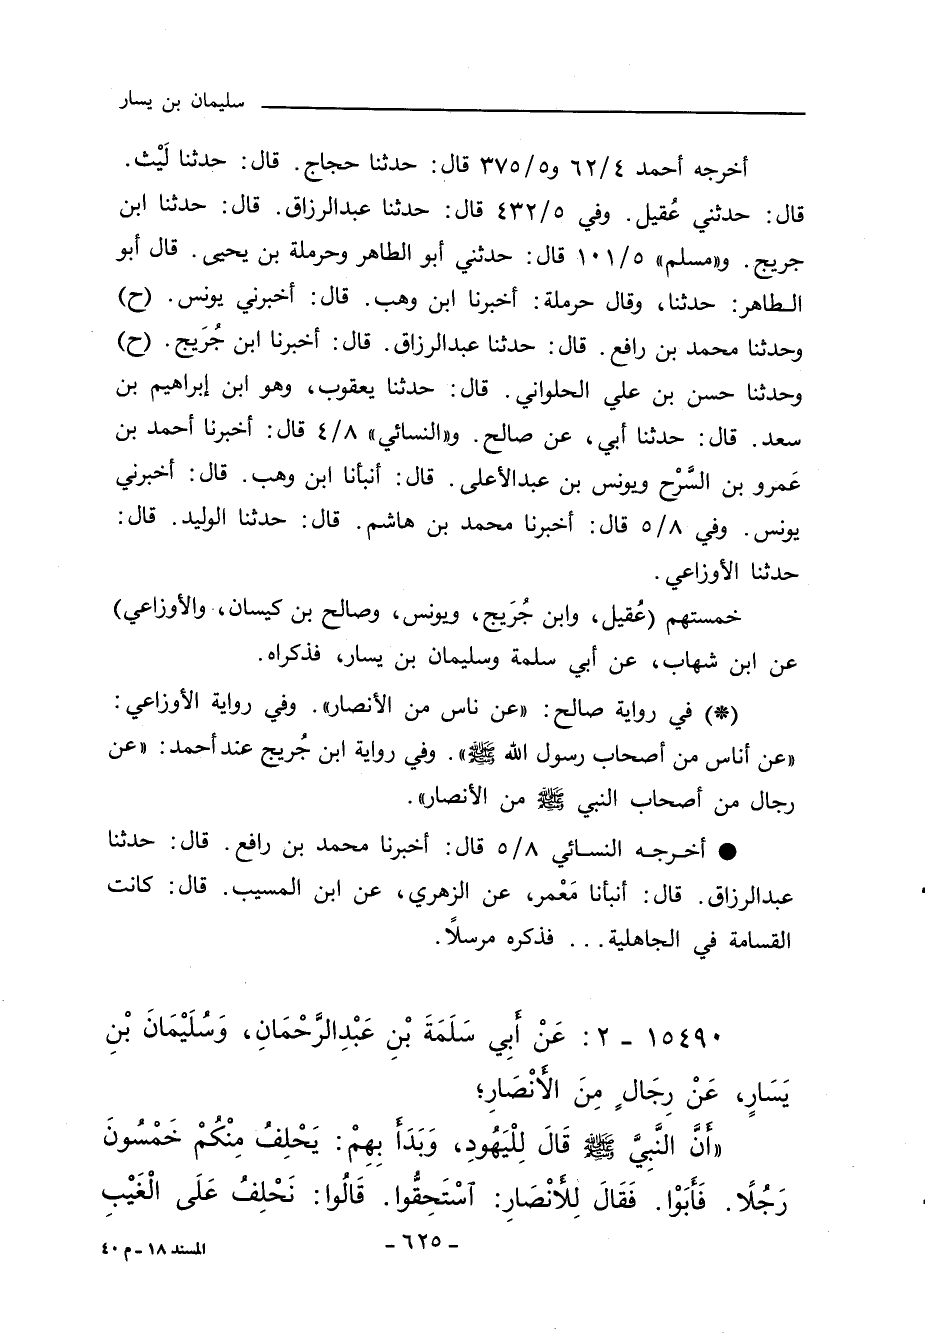 سليمان بن يسار
أخرجه أحمد ٦٢/٤ و٣٧٥/٥ قال: حدثنا حجاج. قال: حدثنا لَيْث.
قال: حدثني عُقيل. وفي ٤٣٢/٥ قال: حدثنا عبدالرزاق. قال: حدثنا ابن
جريج. و«مسلم» ١٠١/٥ قال: حدثني أبو الطاهر وحرملة بن يحيى. قال أبو
الطاهر: حدثنا، وقال حرملة: أخبرنا ابن وهب. قال: أخبرني يونس. (ح)
وحدثنا محمد بن رافع. قال: حدثنا عبدالرزاق. قال: أخبرنا ابن جُرَيج. (ح)
وحدثنا حسن بن علي الحلواني. قال: حدثنا يعقوب، وهو ابن إبراهيم بن
سعد. قال: حدثنا أبي، عن صالح. و«النسائي» ٤/٨ قال: أخبرنا أحمد بن
عَمرو بن السَّرْح ويونس بن عبدالأعلى. قال: أنبأنا ابن وهب. قال: أخبرني
يونس. وفي ٥/٨ قال: أخبرنا محمد بن هاشم. قال: حدثنا الوليد. قال:
حدثنا الأوزاعي.
خمستهم (عُقيل، وابن جُرَيج، ويونس، وصالح بن كيسان، والأوزاعي)
عن ابن شهاب، عن أبي سلمة وسليمان بن يسار، فذكراه.
(*) في رواية صالح: «عن ناس من الأنصار». وفي رواية الأوزاعي:
«عن أناس من أصحاب رسول الله ﷺ». وفي رواية ابن جُريج عند أحمد: «عن
رجال من أصحاب النبي ﷺ من الأنصار».
● أخرجه النسائي ٥/٨ قال: أخبرنا محمد بن رافع. قال: حدثنا
عبدالرزاق. قال: أنبأنا مَعْمر، عن الزهري، عن ابن المسيب. قال: كانت
القسامة في الجاهلية... فذكره مرسلًا.
١٥٤٩٠ - ٢: عَنْ أَبِي سَلَمَةَ بْنِ عَبْدِالرَّحْمَانِ، وَسُلَيْمَانَ بْنِ
يَسَارٍ، عَنْ رِجَالٍ مِنَ الأَنْصَارِ؛
«أَنَّ النَّبِيَّ ﷺ قَالَ لِلْيَهُودِ، وَبَدَأَ بِهِمْ: يَحْلِفُ مِنْكُمْ خَمْسُونَ
رَجُلًا. فَأَبَوْا. فَقَالَ لِلأَنْصَارِ: اسْتَحِقُّوا. قَالُوا: نَحْلِفُ عَلَى الْغَيْبِ
- ٦٢٥ -
المسند ١٨ - م ٤٠